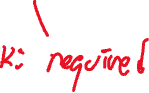 K: required